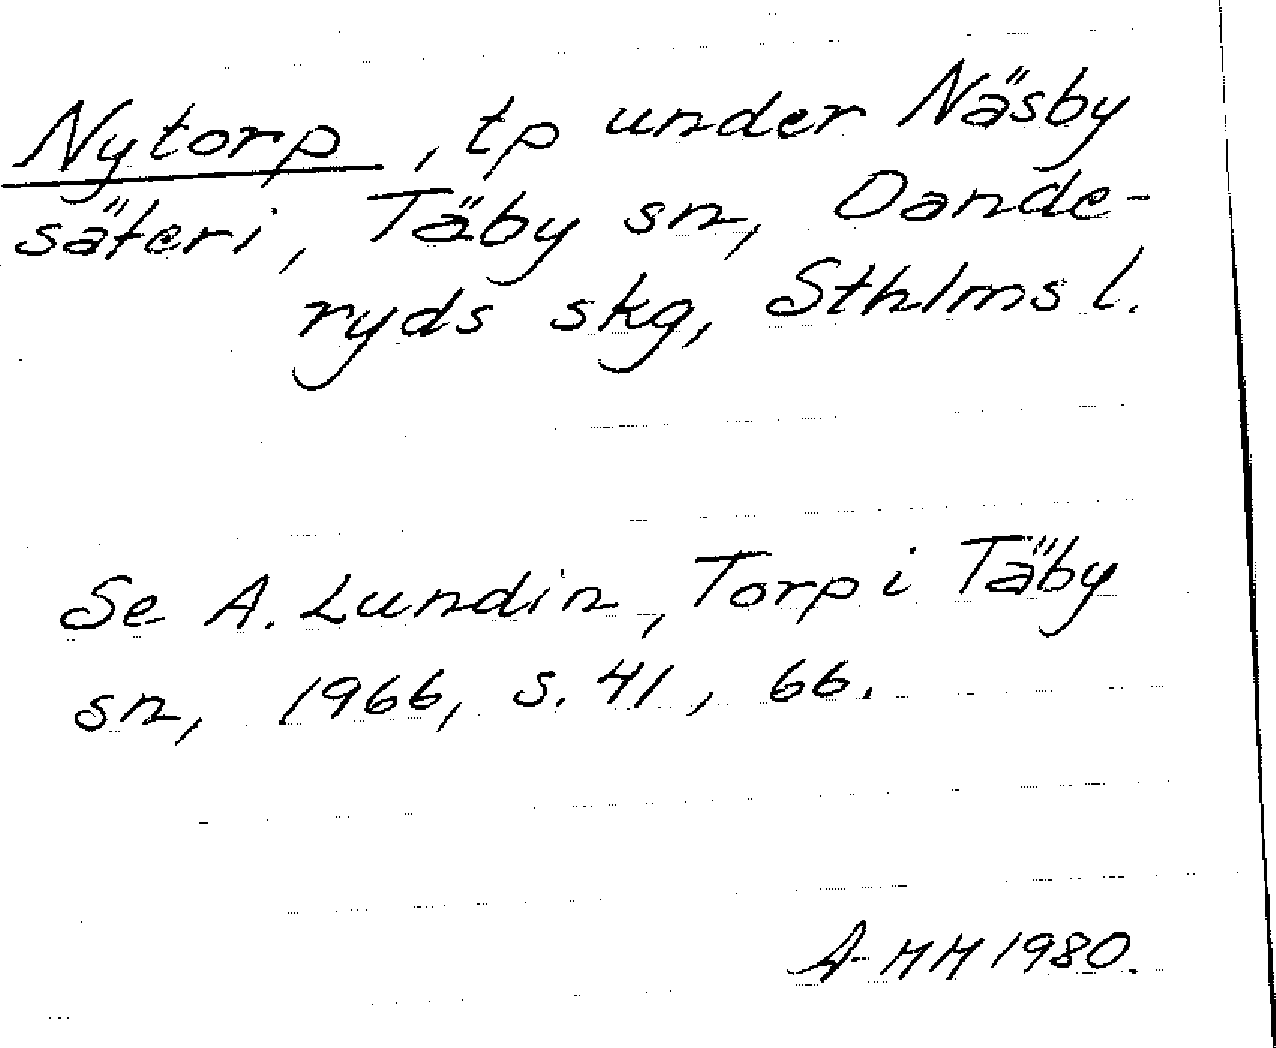 Nytorp, tp under Näsby
säteri, Täby sn, Dande-
ryds skg, Sthlms l.
Se A. Lundin, Torp i Täby
sn, 1966, s. 41, 66.
A-MM 1980.